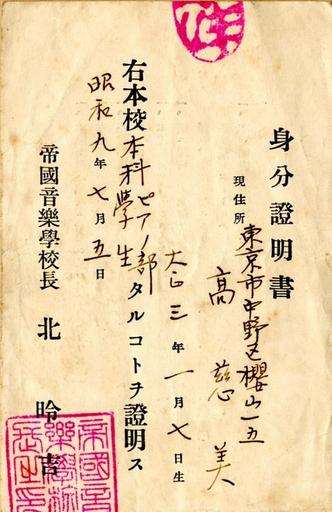 身分證明書
現住所 東京市中野区櫻山一五
高慈美
大正三年一月七日生
右本校本科ピアノ部學生タルコトヲ證明ス
昭和九年七月五日
帝國音樂學校長 北昤吉
帝國音
樂學校
長之印